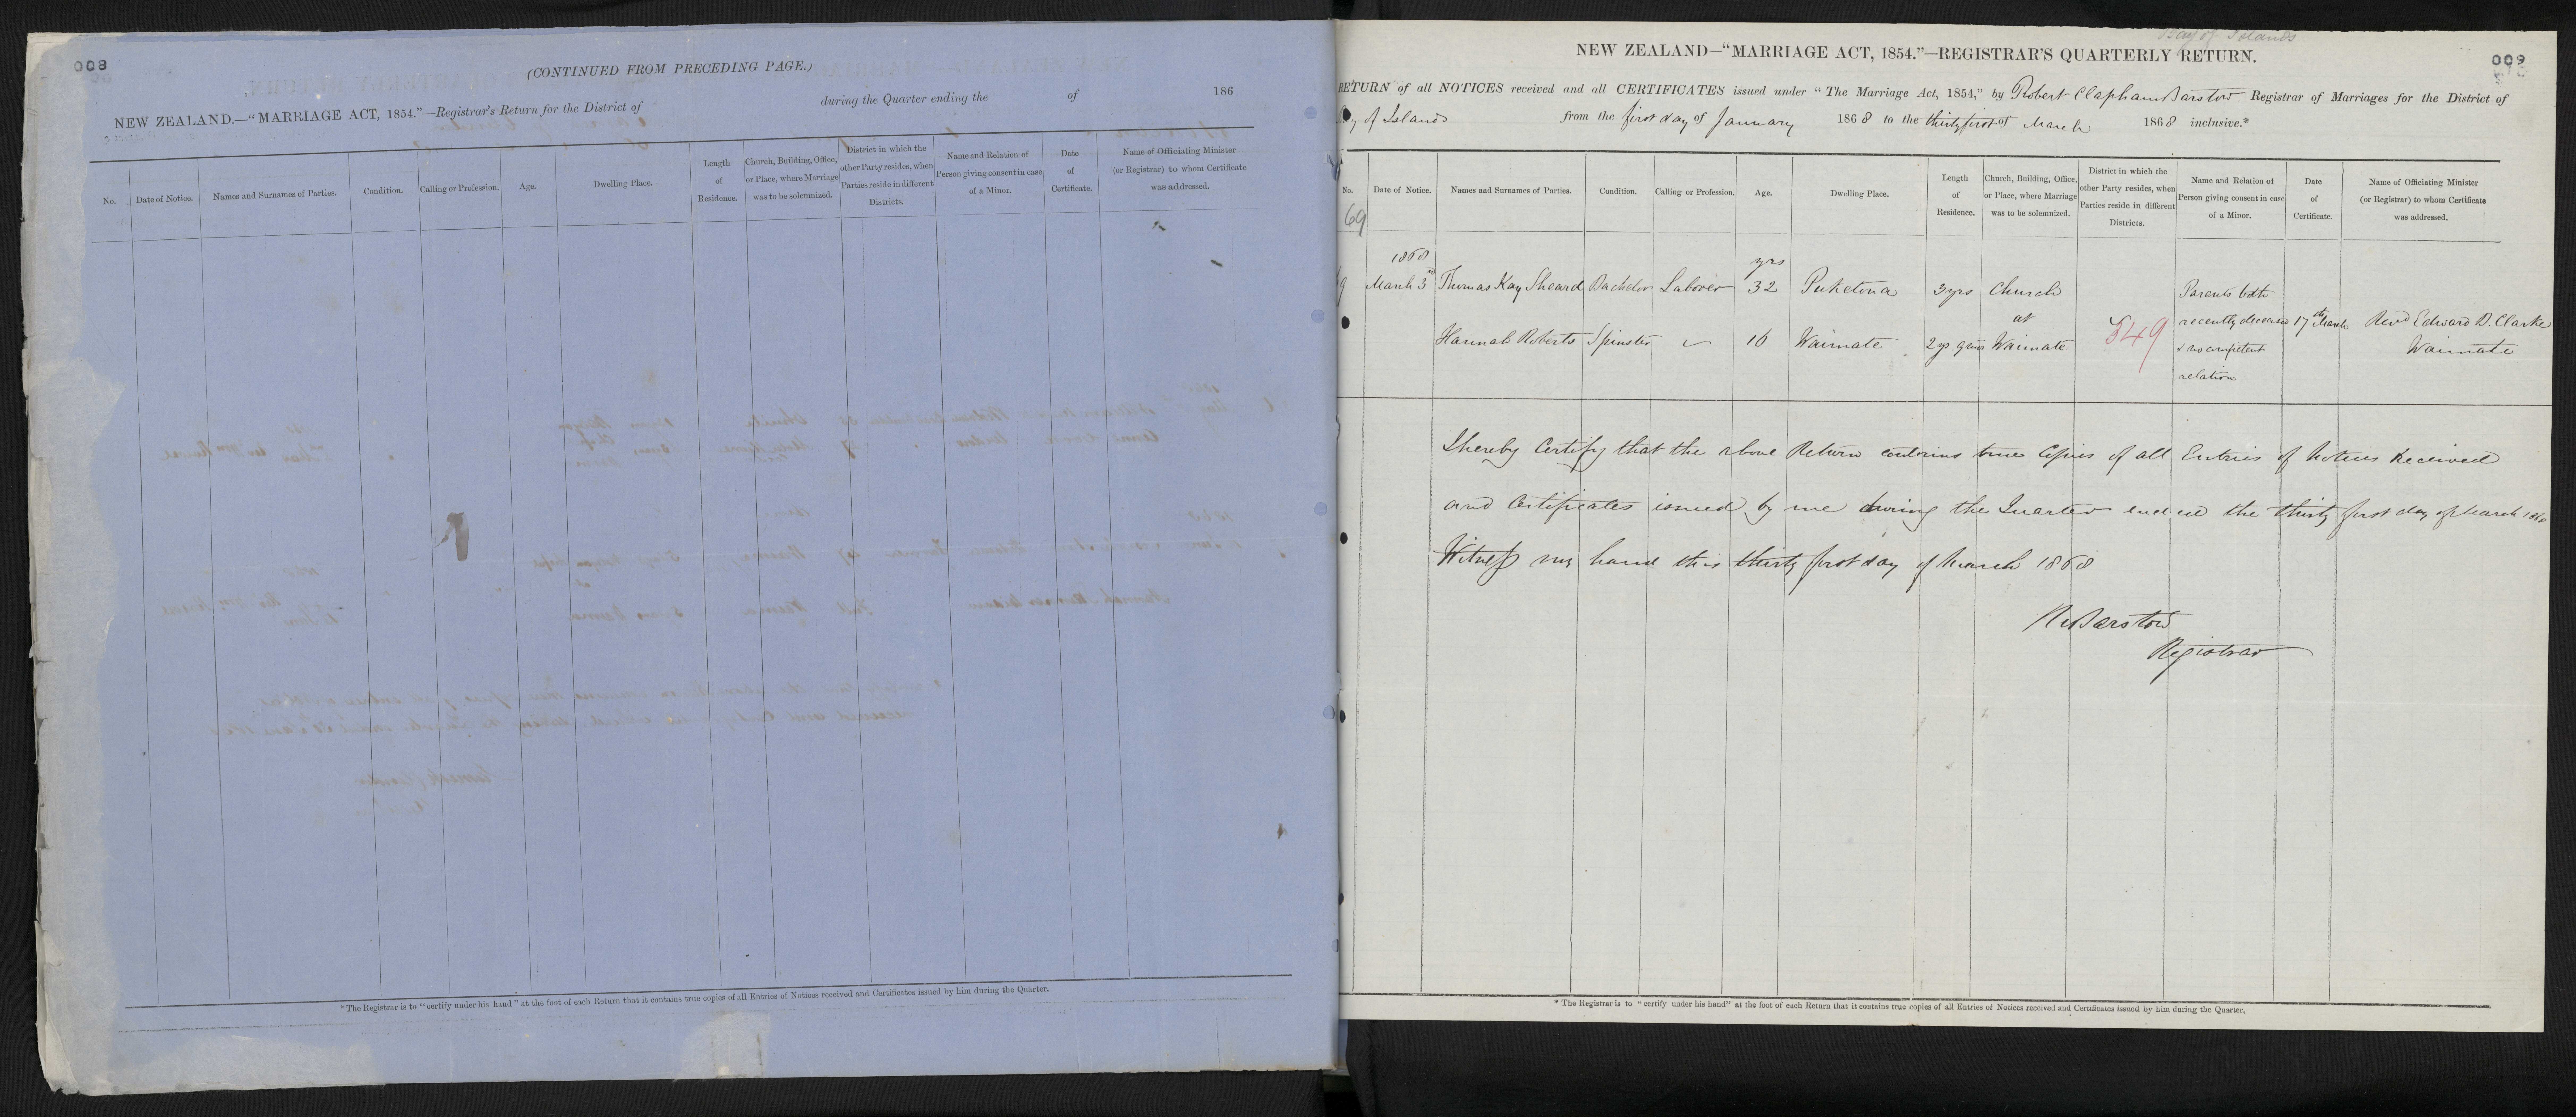 008
(CONTINUED FROM PRECEDING PAGE.)
NEW ZEALAND.—"MARRIAGE ACT, 1854."—Registrar's Return for the District of during the Quarter ending the of 186
No. Date of Notice. Names and Surnames of Parties. Condition. Calling or Profession. Age. Dwelling Place. Length of Residence. Church, Building, Office, or Place, where Marriage was to be solemnized. District in which the other Party resides, when Parties reside in different Districts. Name and Relation of Person giving consent in case of a Minor. Date of Certificate. Name of Officiating Minister (or Registrar) to whom Certificate was addressed.
*The Registrar is to "certify under his hand" at the foot of each Return that it contains true copies of all Entries of Notices received and Certificates issued by him during the Quarter.
Bay of Islands
009
NEW ZEALAND—"MARRIAGE ACT, 1854."—REGISTRAR'S QUARTERLY RETURN.
RETURN of all NOTICES received and all CERTIFICATES issued under "The Marriage Act, 1854," by Robert Clapham Barstow Registrar of Marriages for the District of
Bay of Islands from the first day of January 1868 to the thirty first of March 1868 inclusive.*
No. Date of Notice. Names and Surnames of Parties. Condition. Calling or Profession. Age. Dwelling Place. Length of Residence. Church, Building, Office, or Place, where Marriage was to be solemnized. District in which the other Party resides, when Parties reside in different Districts. Name and Relation of Person giving consent in case of a Minor. Date of Certificate. Name of Officiating Minister (or Registrar) to whom Certificate was addressed.
69
1868 yrs
March 3rd Thomas Kay Sheard Bachelor Laborer 32 Puketona 3 yrs Church Parents both
at recently deceased 17th March Revd Edward B. Clarke
Hannah Roberts Spinster 16 Waimate 2 ys. 9 mos Waimate 549 & no competent Waimate
relation
I hereby Certify that the above Return contains true Copies of all Entries of Notices Received
and Certificates issued by me during the Quarter ended the thirty first day of March 1868
Witness my hand this thirty first day of March 1868
R C Barstow
Registrar
* The Registrar is to "certify under his hand" at the foot of each Return that it contains true copies of all Entries of Notices received and Certificates issued by him during the Quarter.